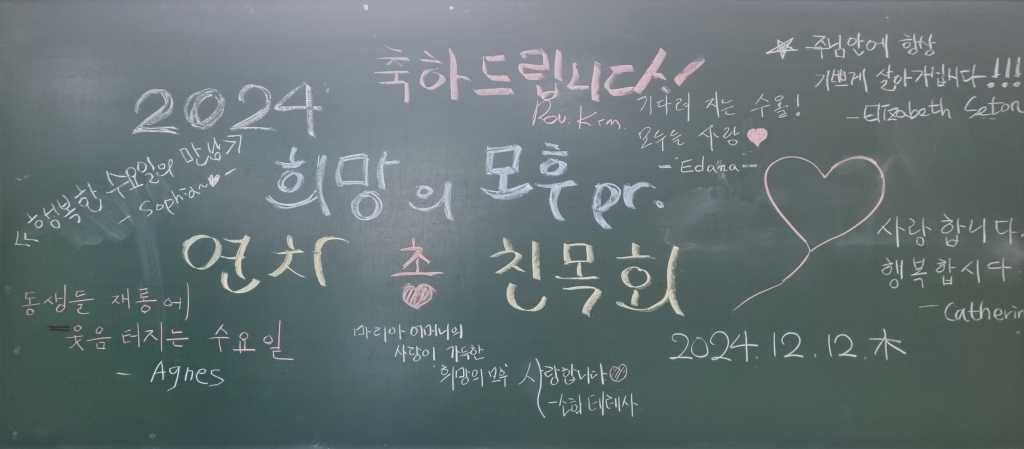 2024
축하드립니다!
Rev. Kim.
희망의 모후 pr.
연차 총 친목회
☆ 주님안에 항상
기쁘게 살아가십니다!!!
- Elizabeth Seton
기다려 지는 수욜!
오늘을 사랑♥
- Edana -
《행복한 수요일의 만남》
- Sophia ♥ -
사랑합니다.
행복합시다
- Catherin
동생들 재롱에
웃음 터지는 수요일
- Agnes
마리아 어머니의
사랑이 가득한
희망의 모후 사랑합니다♡
- 소화 데레사
2024. 12. 12. 木